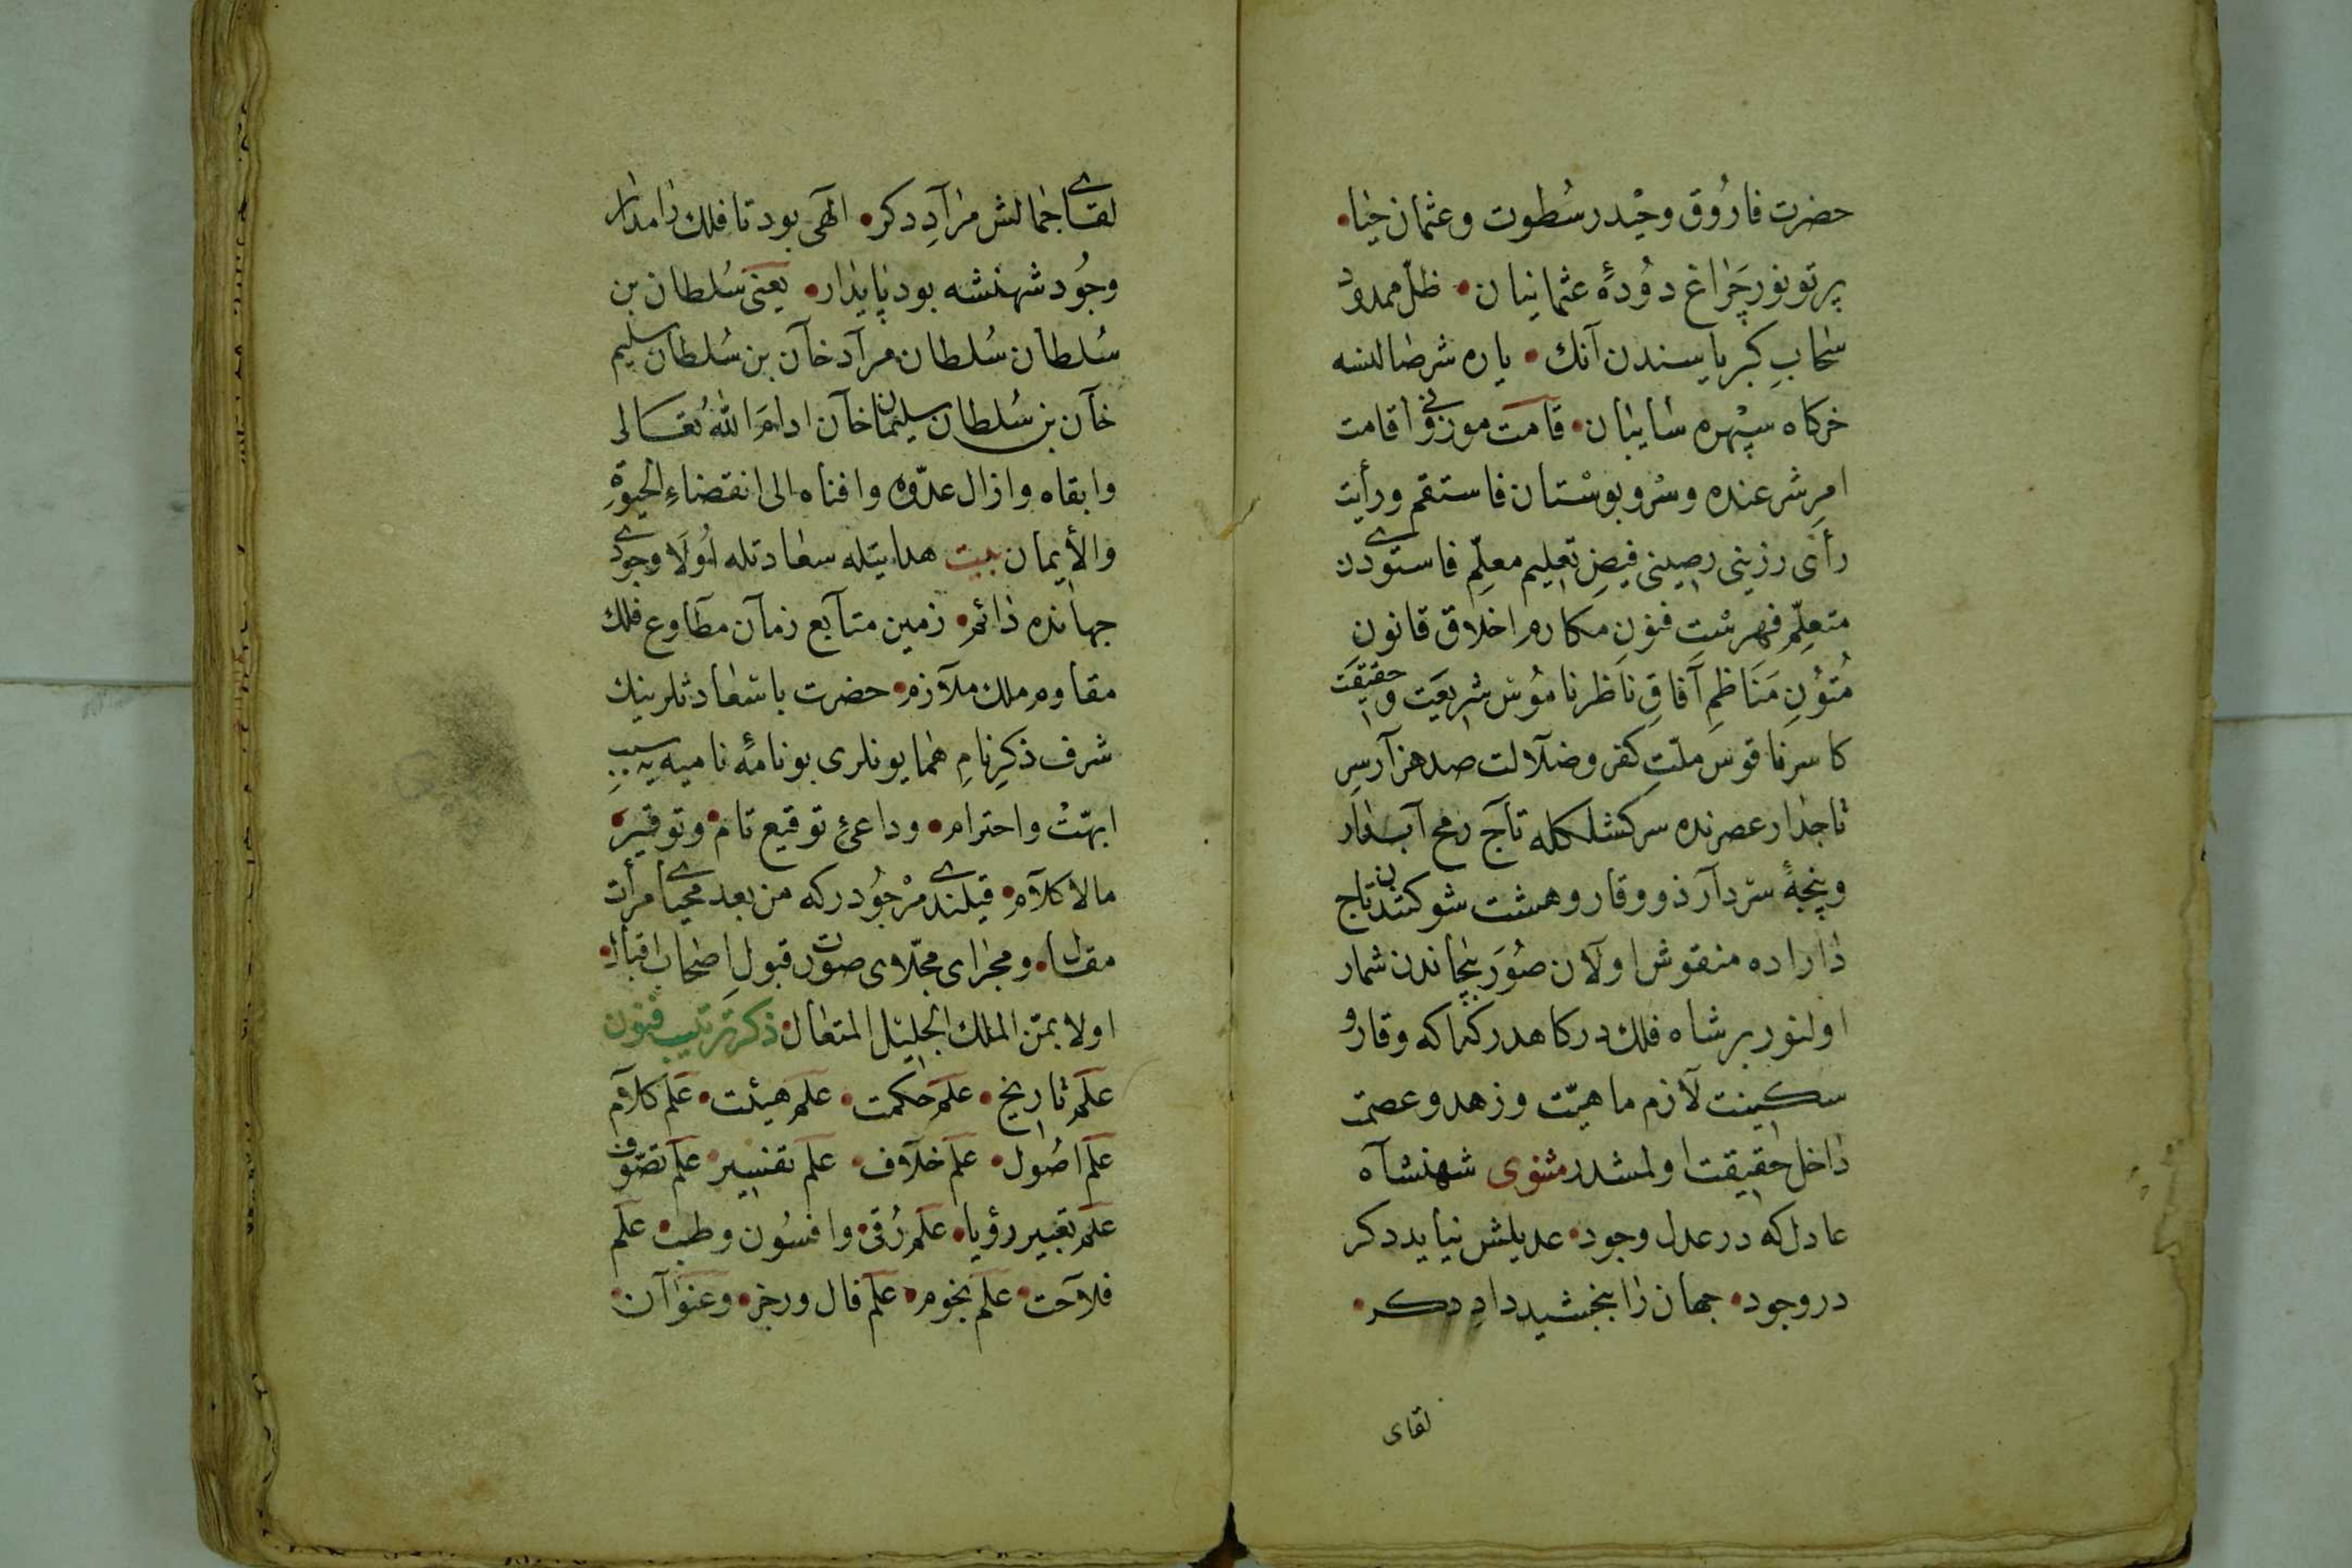 حضرت فاروق وحیدر سطوت وعثمان حیا
پرتو نور چراغ دودهٔ عثمانیان ظلّ ممدود
سحاب کبریاسندن آنك یاره شرضا لنسه
خرکاه سپهره سایبان قامت موزونی اقامت
امر شرعنده وسرو بوستان فاستقم ورأیت
رأی رزینی رصینی فیض تعلیم معلّم فاستوی دن
متعلّم فهرست فنون مکارم اخلاق قانون
متون مناظم آفاق ناظر ناموس شریعت وحقیقت
کاسر ناقوس ملّت کفر وضلالت صد هزار سر
تاجدار عصرنده سرکشلکله تاج رمح آبدار
وپنجهٔ سردار ذو وقار وهشت شوکتندن تاج
دارا ده منقوش اولان صور بیجاندن شمار
اولنور بر شاه فلك درکاهدر که اکه وقار و
سکینت لازم ماهیّت وزهد وعصمت
داخل حقیقت اولمشدر مثنوی شهنشاه
عادل که در عدل وجود عدیلش نیاید دکر
در وجود جهان را ببخشید داد دکر
لقای
لقای جمالش مراد دکر الهی بود تا فلك را مدار
وجود شهنشه بود پایدار یعنی سلطان بن
سلطان سلطان مراد خان بن سلطان سلیم
خان بن سلطان سلیمان خان ادام الله تعالی
وابقاه وازال عدوّه وافناه الی انقضاء الحیوة
والأیمان بیت هدایتله سعادتله اولا وجودی
جهانده دائم زمین متابع زمان مطاوع فلك
مقاوم ملك ملازم حضرت باسعادتلرینك
شرف ذکر نام همایونلری بو نامهٔ نامیه یه سبب
ابهّت واحترام وداعئ توقیع تام وتوقیر
مالا کلام قیلندی مرجودر که من بعد محیای مرأت
مقال ومجرای مجلّای صورت قبول اصحاب اقبال
اولا بمنّ الملك الجلیل المتعال ذکر ترتیب فنون
علم تاریخ علم حکمت علم هیئت علم کلام
علم اصول علم خلاف علم تفسیر علم تصوّف
علم تعبیر رؤیا علم رقی وافسون وطب علم
فلاحت علم نجوم علم فال ورجز وعنوان